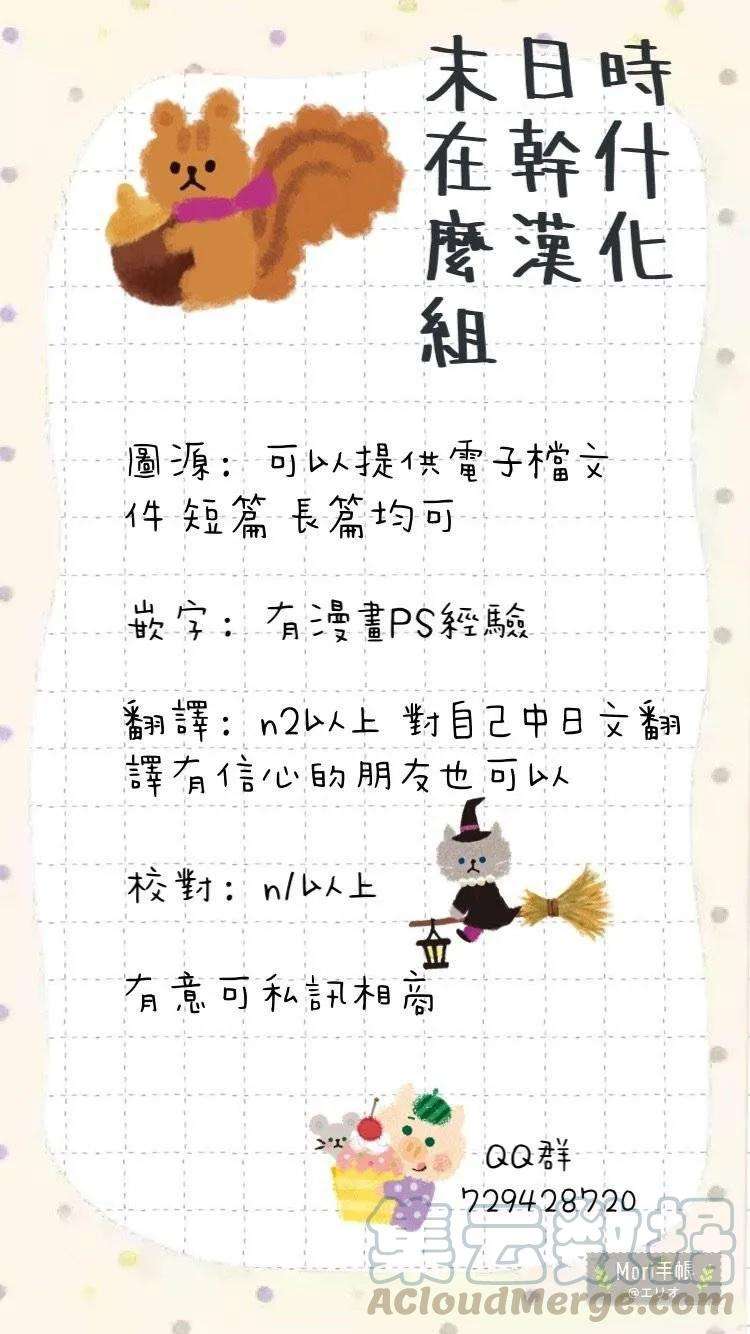 末日時
在幹什
麼漢化
組
圖源：可以提供電子檔文
件 短篇 長篇均可
嵌字：有漫畫PS經驗
翻譯：n2以上 對自己中日文翻
譯有信心的朋友也可以
校對：n1以上
有意可私訊相商
QQ群
729428720
集云数据
Mori手帳
@エリオ
ACloudMerge.com